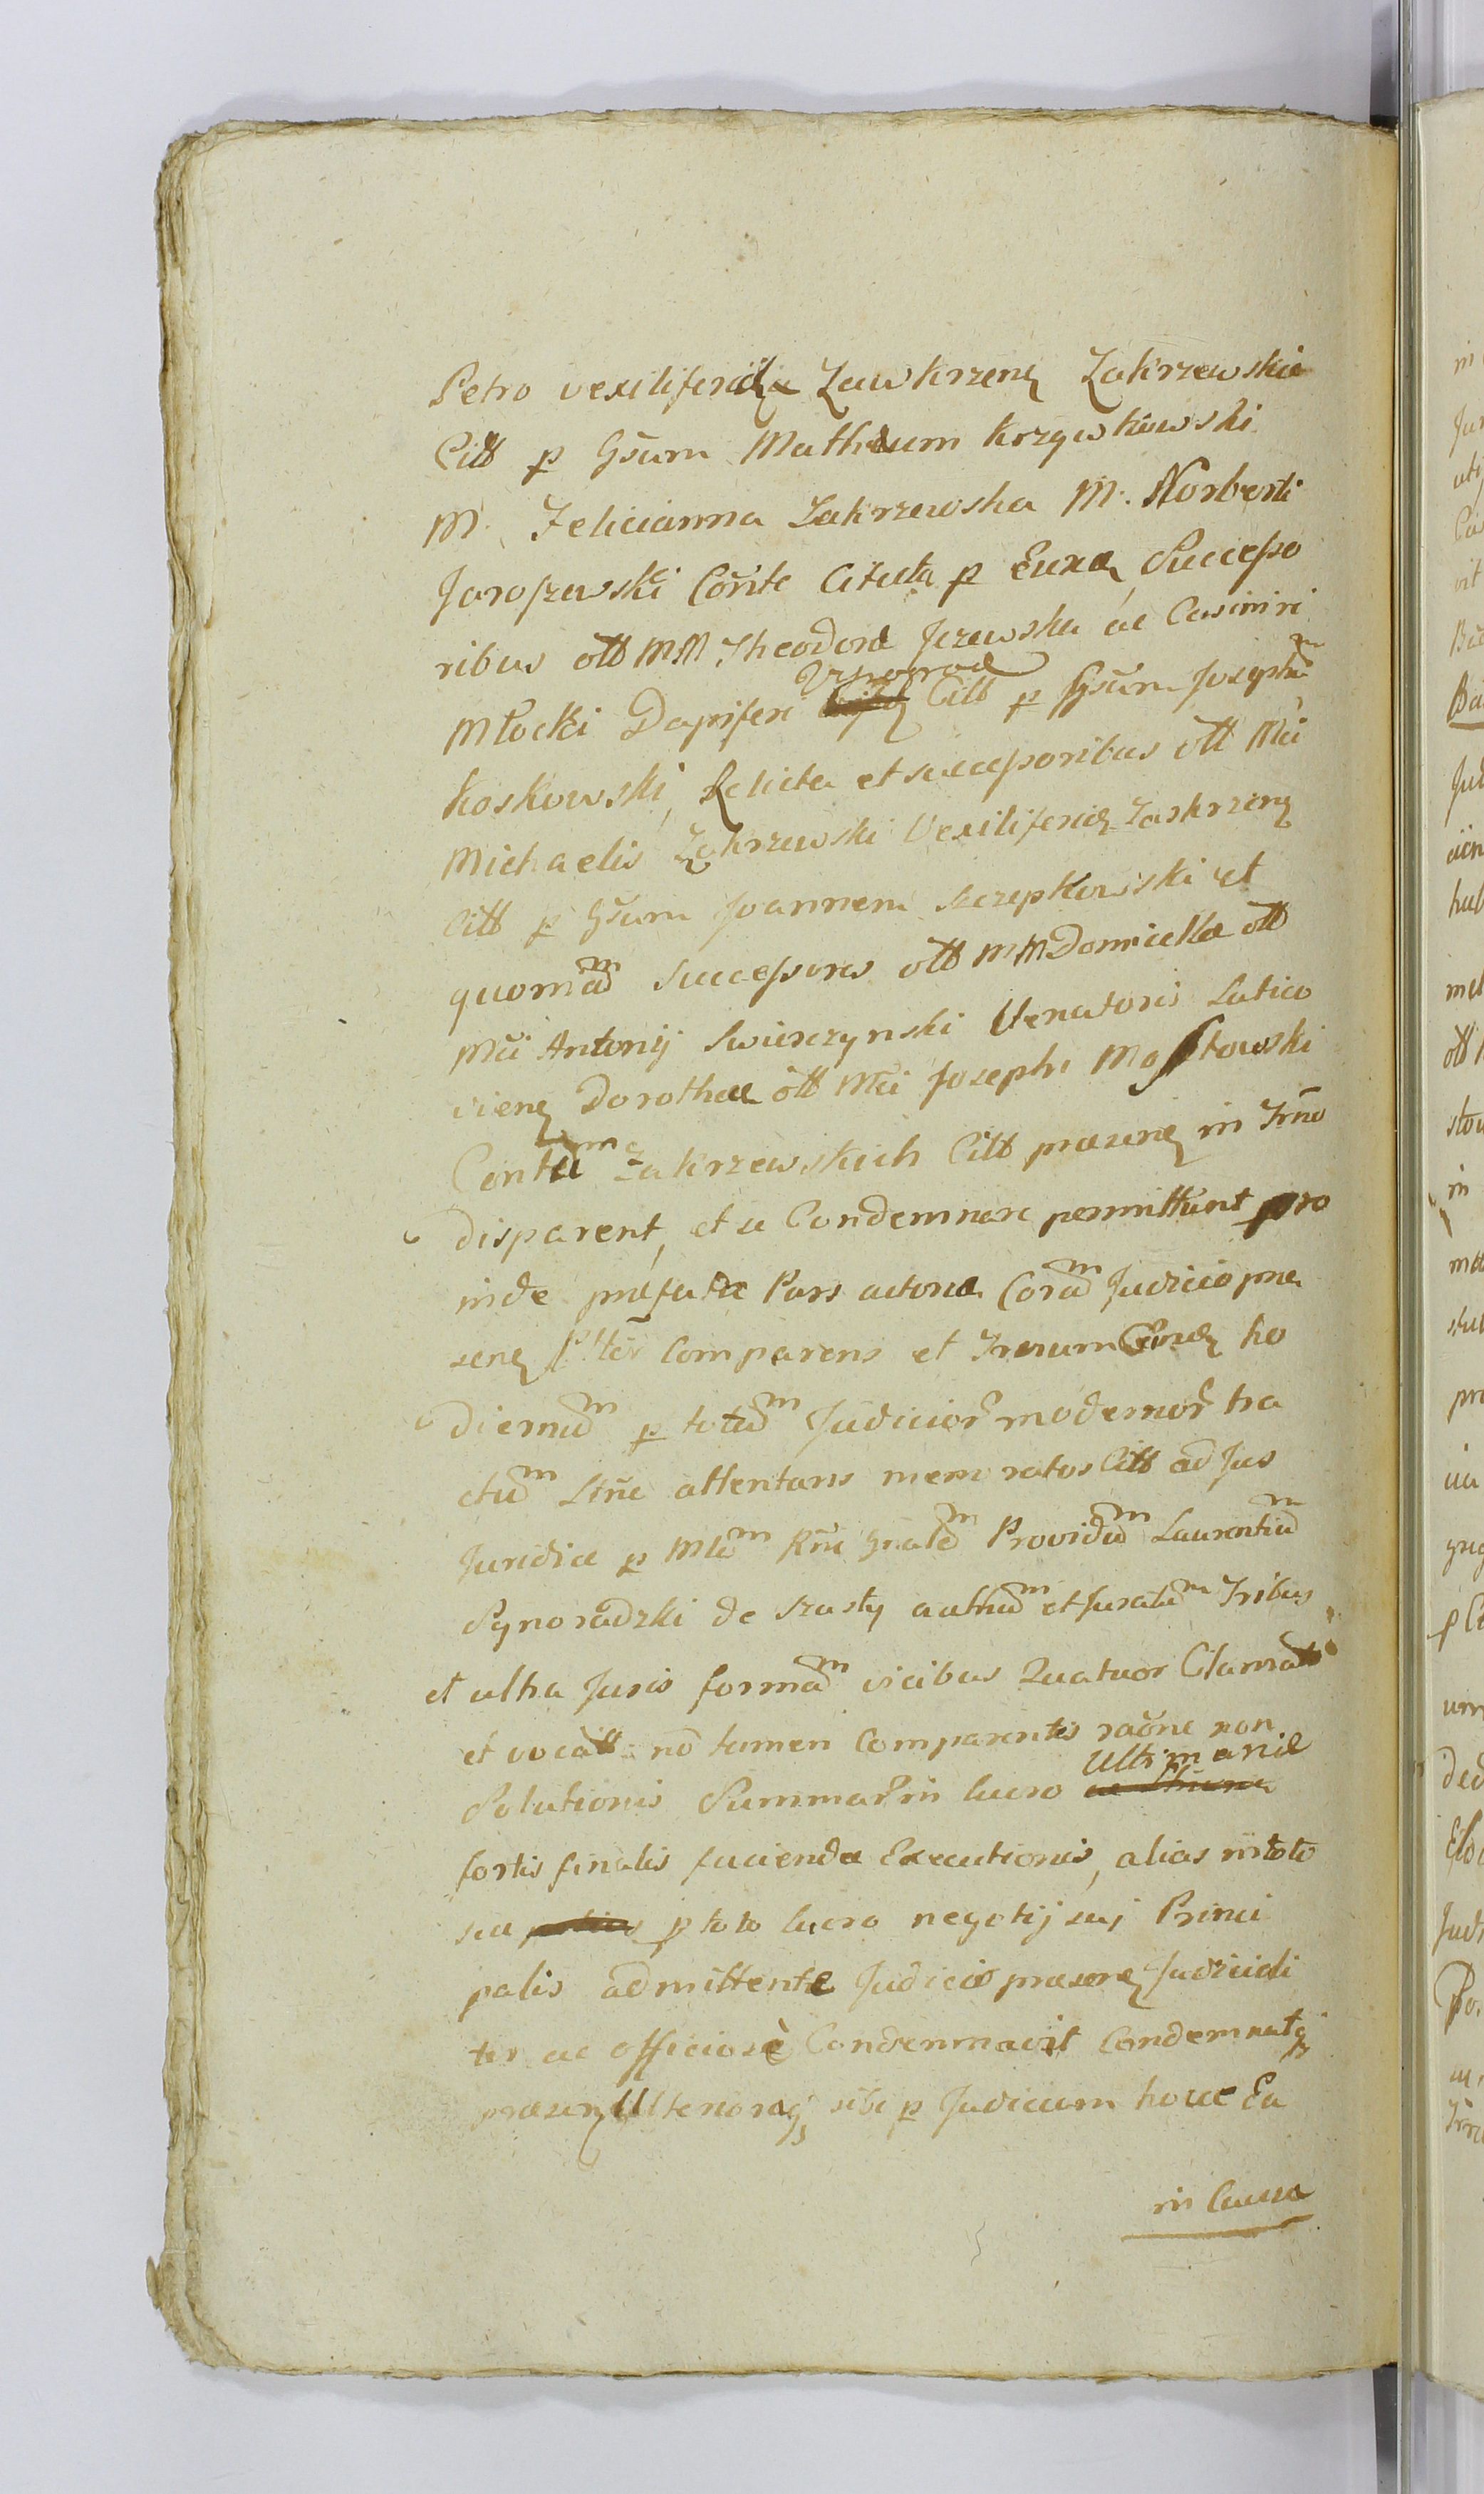 Petro vexiliferida Zawkrzen Zakrzewskie
Citt p Gsum Matheum Krzywkowski
M. Felicianna Zakrzewska M. Norberti
Jaroszewski Cōnte Citata p Euxa, Succeſso
ribus ott MM Theodora Jezewska ac Casimiri
Młocki Dapiferi Wyszograd Citt p Gsum Josephum
Koskowski, Relicta et succeſsoribus ott Mci
Michaelis Zakrzewski Vexiliferid Zaskrzen
Citt p Gsum Joannem Szczepkowski et
quoniam Succeſsores ott MM Domicella ott
Mci Antonij Swierczynski Venatoris Latico
vien Dorothae ott Mci Josephi Moſtowski
Contum Zakrzewskich Citt praesen in Trno
disparent, et se Condemnare permittunt pro
inde praefata Pars actorea Coram Judicio prae
sen comparens et Trnum ho
diernum p totum Judicior modernor tra
ctum attentans memoratos Citt ad Jus
Juridice p Mtem Rni Gnalem Providum Laurentium
Synoradzki de Szasty authum et Juratum Tribus
et ultra Juris formam vicibus Quatuor Clamatt
et vocatt no tamen Comparentes raone non
Solutionis Summar in lucro Ultimariae
fortis finalis facienda Executionis, alias in toto
seu p toto lucro negotij sui Princi
palis admittente Judicio praesen Judiciali
ter ac officiose Condemnavit Condemnatq
praesen Ulterioraq sibi p Judicium hocce Ea
in Causa